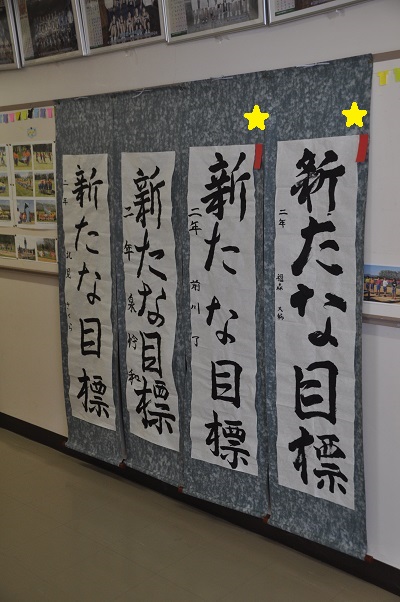 新たな目標
二年
新たな目標
二年 前川 了
新たな目標
二年 泉 怜和
新たな目標
二年